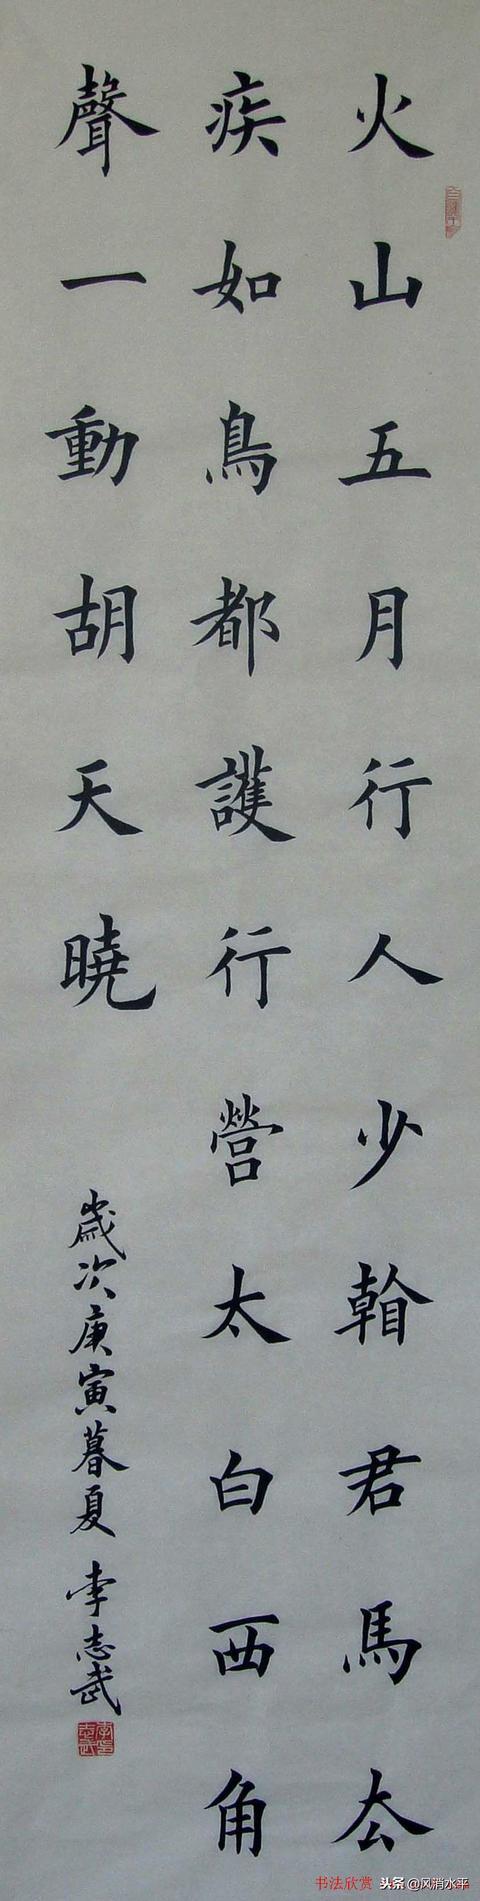 火山五月行人少看君馬厺
疾如鳥都護行營太白西角
聲一動胡天曉
歲次庚寅暮夏 李志武
书法欣赏
头条 @风消水平